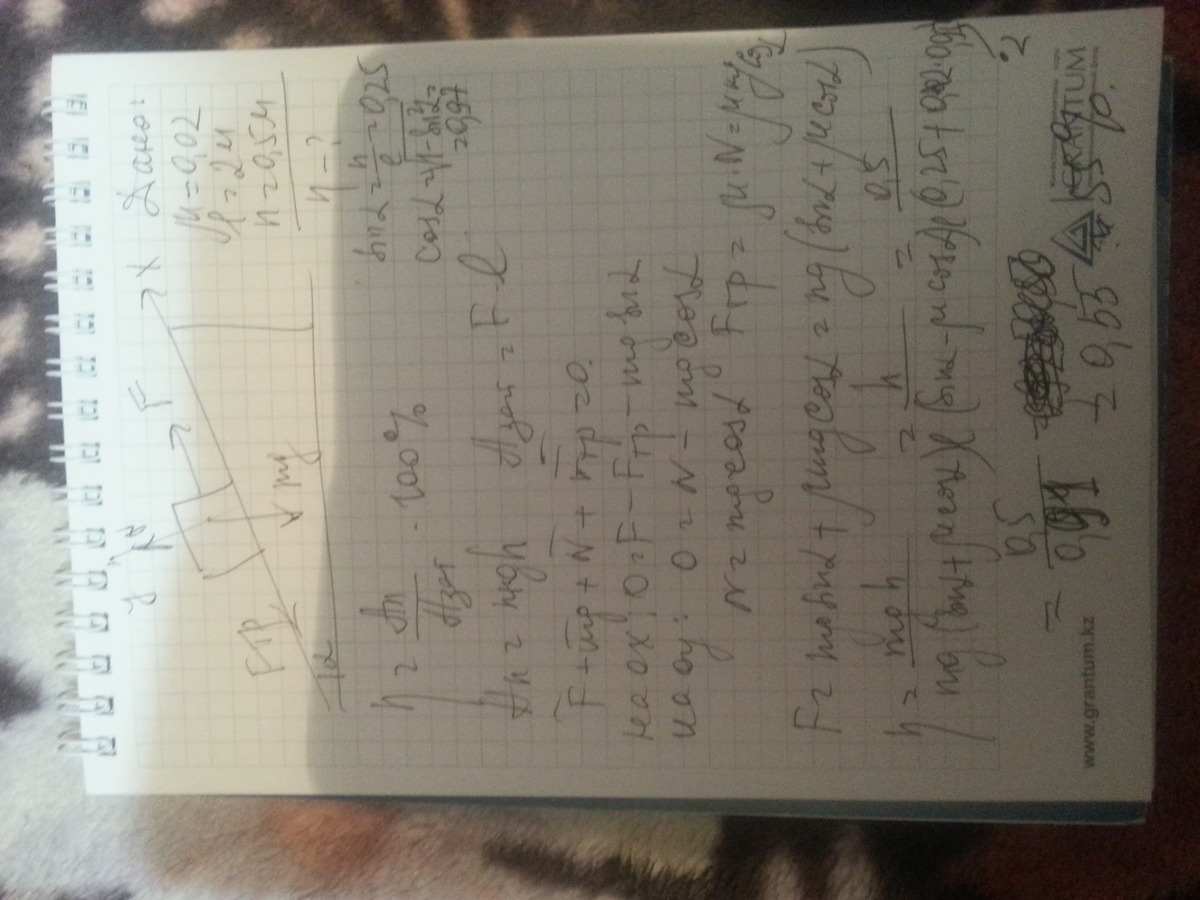 Дано:
μ = 0,02
l = 2м
h = 0,5м
η - ?
y
N
F
X
Fтр
mg
α
sinα = h/l = 0,25
cosα = √1 - sin²α = 0,97
η = Aп/Aзат · 100%
Aп = mgh Aзат = F l
F + mg + N + Fтр = 0.
на ox: 0 = F - Fтр - mg sinα
на oy: 0 = N - mg cosα
N = mg cosα Fтр = μ · N = μ mg cosα
F = mg sinα + μmg cosα = mg (sinα + μ cosα)
η = mgh / mg (sinα + μ cosα) l = h / (sinα - μ cosα) l = 0,5 / (0,25 + 0,02 · 0,97) · 2
= 0,5 / 0,91 = 0,55 = 55 %.
www.grantum.kz